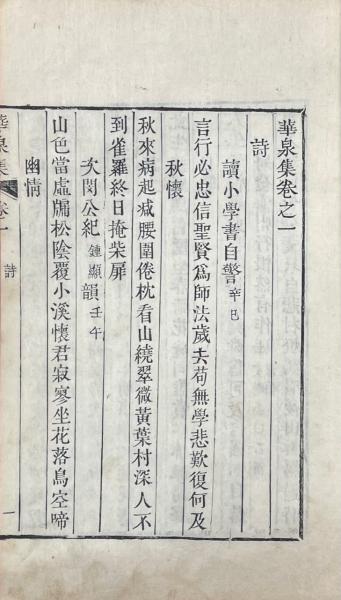 華泉集卷之一
詩
讀小學書自警辛巳
言行必忠信聖賢爲師法歲去苟無學悲歎復何及
秋懷
秋來病起減腰圍倦枕看山繞翠微黃葉村深人不
到雀羅終日掩柴扉
次閔公紀鍾顯韻壬午
山色當虛牖松陰覆小溪懷君寂寥坐花落鳥空啼
幽情
華泉集
卷一
詩
一